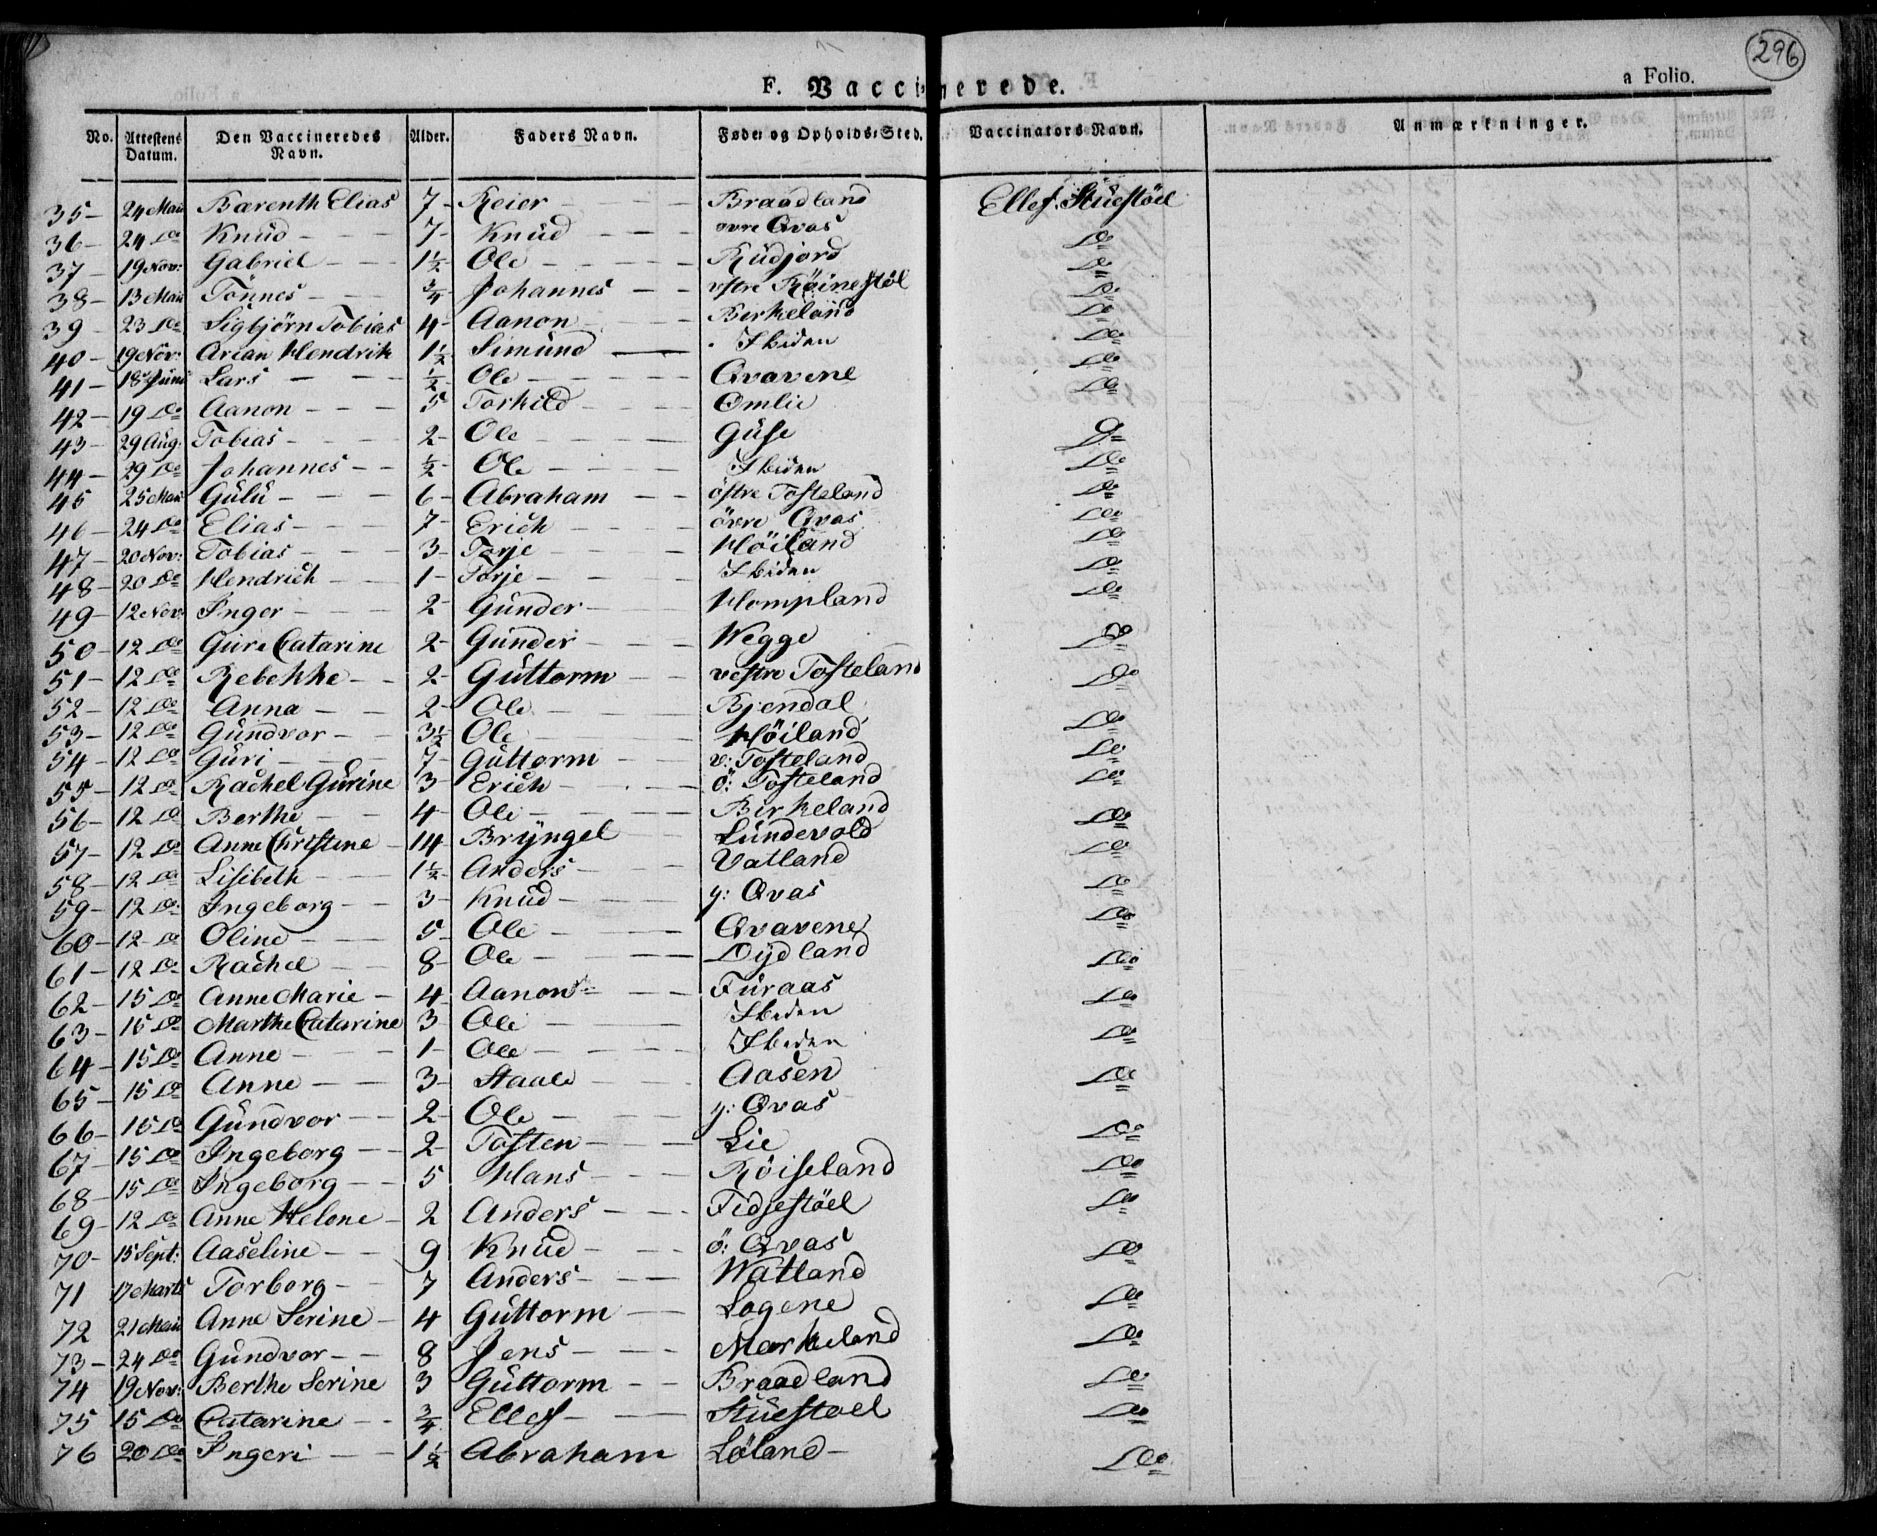 296
F. Vaccinerede.
a Folio.
No. Attestens Datum. Den Vaccineredes Navn. Alder. Faders Navn. Føde- og Opholds-Sted. Vaccinators Navn. Anmærkninger.
35- 24 Mai Barenth Elias 7- Reier - - - Braadland Ellef Stuestöel
36- 24 Do Knud - - - 7- Knud - - - övre Qvas Do
37- 19 Nov: Gabriel - - - 1½ Ole - - - Rudjord Do
38- 13 Mai Tönnes - - - ¾ Johannes - - vstre Röinestöl Do
39- 23 Do Sigbjörn Tobias 4- Aanon - - - Birkeland Do
40- 19 Nov: Arian Hendrik 1½ Simund - - Ibiden Do
41- 18 Juni Lars - - - ½- Ole - - - Qvavene Do
42- 19 Do Aanon - - - 5 Torkild - - - Omlie Do
43- 29 Aug: Tobias - - - 2- Ole - - - Guse Do
44- 29 Do Johannes - - ½- Ole - - - Ibiden Do
45 25 Mai Gulu - - - 6- Abraham - - östre Tosteland Do
46- 24 Do Elias - - - 7- Erich - - - övre Qvas Do
47- 20 Nov: Tobias - - - 3- Torje - - - Höiland Do
48- 20 Do Hendrich - - 1- Torje - - - Ibiden Do
49- 12 Nov: Inger - - - 2- Gunder - - Hompland Do
50- 12 Do Gure Catarine 2- Gunder - - - Wegge Do
51- 12 Do Rebekke - - 2- Guttorm - - vestre Tosteland Do
52- 12 Do Anna - - 2- Ole - - - Bjendal
53- 12 Do Gundvor - - 3½ Ole - - - Höiland Do
54- 12 Do Guri - - - 7- Guttorm - - v: Tosteland Do
55- 12 Do Rachel Gurine 3 Erich - - - ö: Tosteland Do
56- 12 Do Berthe - - 4- Ole - - - Birkeland
57- 12 Do Anne Christine - 14 Bryngel Lundevold Do
58- 12 Do Lisebeth - - 1½ Anders - - Vatland Do
59- 12 Do Ingeborg - - 3- Knud - - - y: Qvas Do
60- 12 Do Oline - - - 5- Ole - - - Qvavene Do
61- 12 Do Rachel - - 8- Ole - - - Dydland Do
62- 15 Do Anne Marie - 4- Aanon - - - Furaas
63- 15 Do Marthe Catarine 3- Ole - - - Ibiden Do
64- 15 Do Anne - - - 1- Ole - - - Ibiden Do
65- 15 Do Anne - - - 3- Staale - - Aasen Do
66- 15 Do Gundvor - - 2- Ole - - - y: Qvas
67- 15 Do Ingeborg - - 2- Tosten - - - Lie Do
68- 15 Do Ingeborg - - 5 Hans - - Röiseland Do
69- 12 Do Anne Helene - 2 Anders - - - Fidjestöel Do
70- 15 Sept: Aaseline - - 9 Knud - - - ö: Qvas Do
71 17 Marts Torborg - - 7 Anders - - - Watland
72 21 Mai Anne Serine - 4 Guttorm - - Logene Do
73- 24 Do Gundvor - - 8 Jens - - - Merkeland Do
74 19 Nov: Berthe Serine 3 Guttorm - - Braadland Do
75 15 Do Catarine - - ¾ Ellef - - Stuestoel Do
76 20 Do Ingeri - - 1½ Abraham Löland - Do